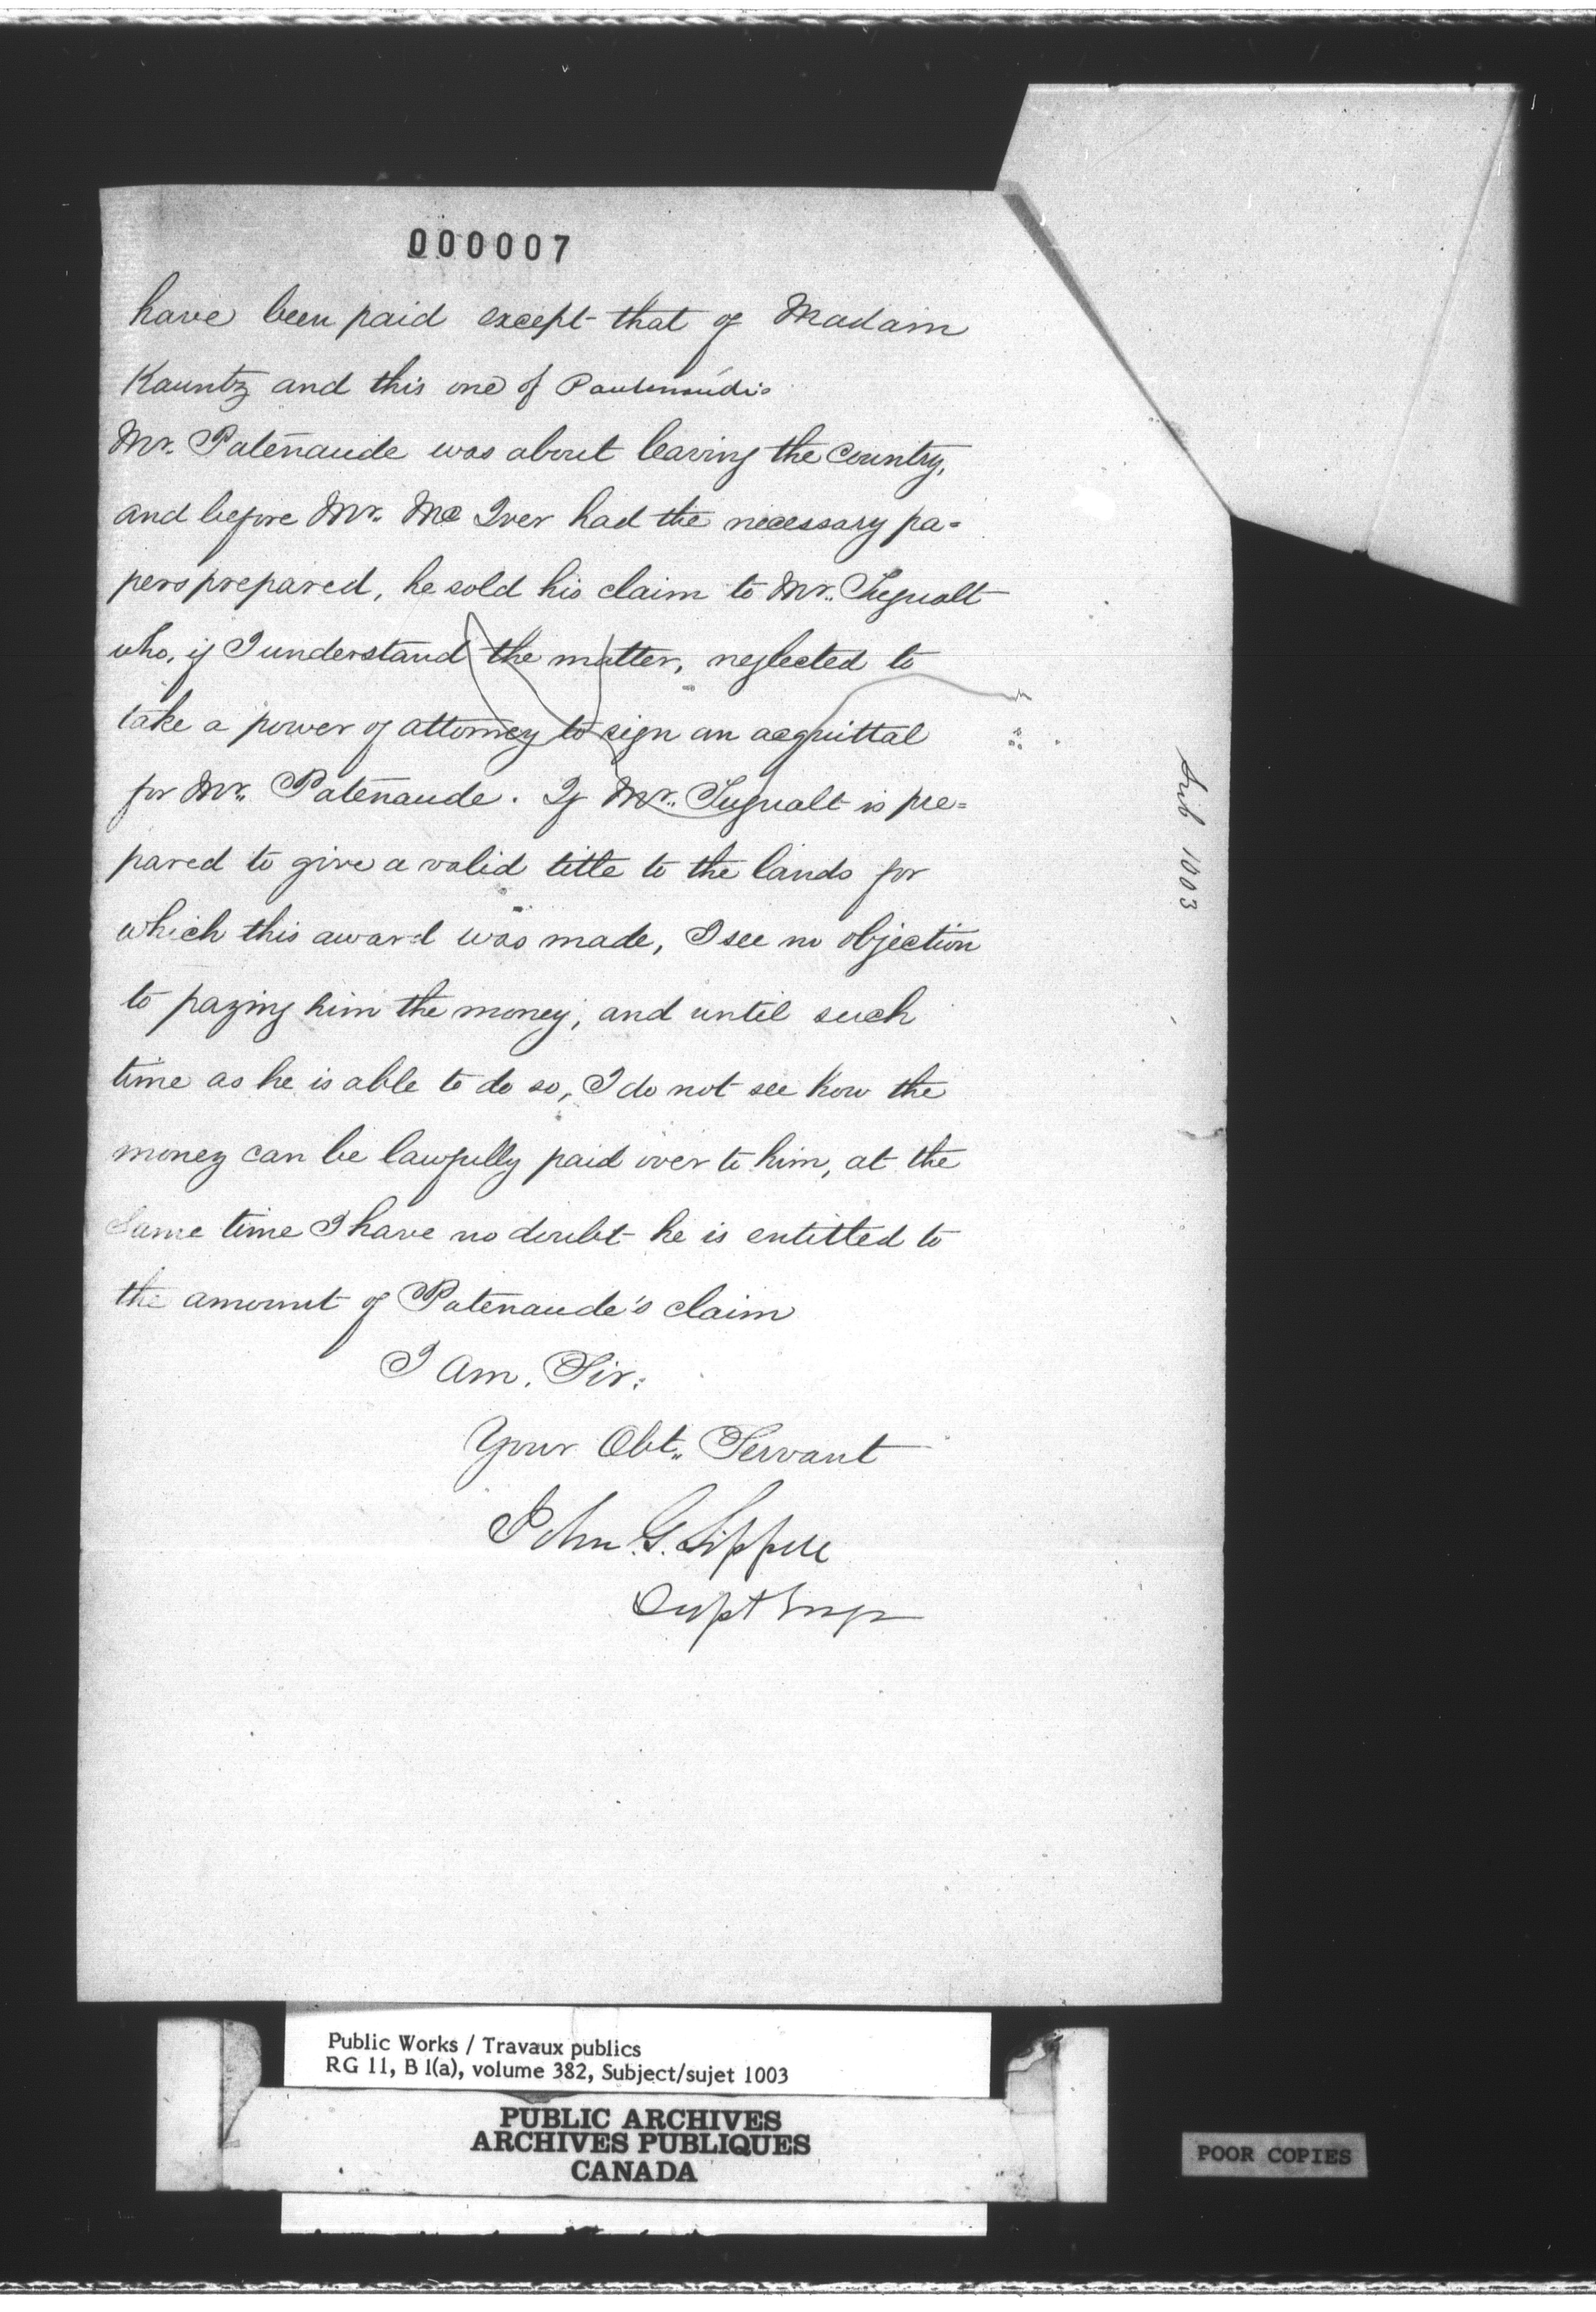 000007
have been paid except that of Madam
Kauntz and this one of
Mr. Patenaude was about leaving the Country,
and before Mr. Mc Iver had the necessary pa=
pers prepared, he sold his claim to Mr.
who, if I understand the matter, neglected to
take a power of attorney to sign an acquittal
for Mr. Patenaude. If Mr. is pre=
pared to give a valid title to the lands for
which this award was made, I see no objection
to paying him the money; and until such
time as he is able to do so, I do not see how the
money can be lawfully paid over to him, at the
same time I have no doubt he is entitled to
the amount of Patenaude's claim
I Am. Sir:
Your Obt. Servant
John. G. Sippell
Supt Engr
Sub 1003
Public Works / Travaux publics
RG 11, B 1(a), volume 382, Subject/sujet 1003
PUBLIC ARCHIVES
ARCHIVES PUBLIQUES
CANADA
POOR COPIES